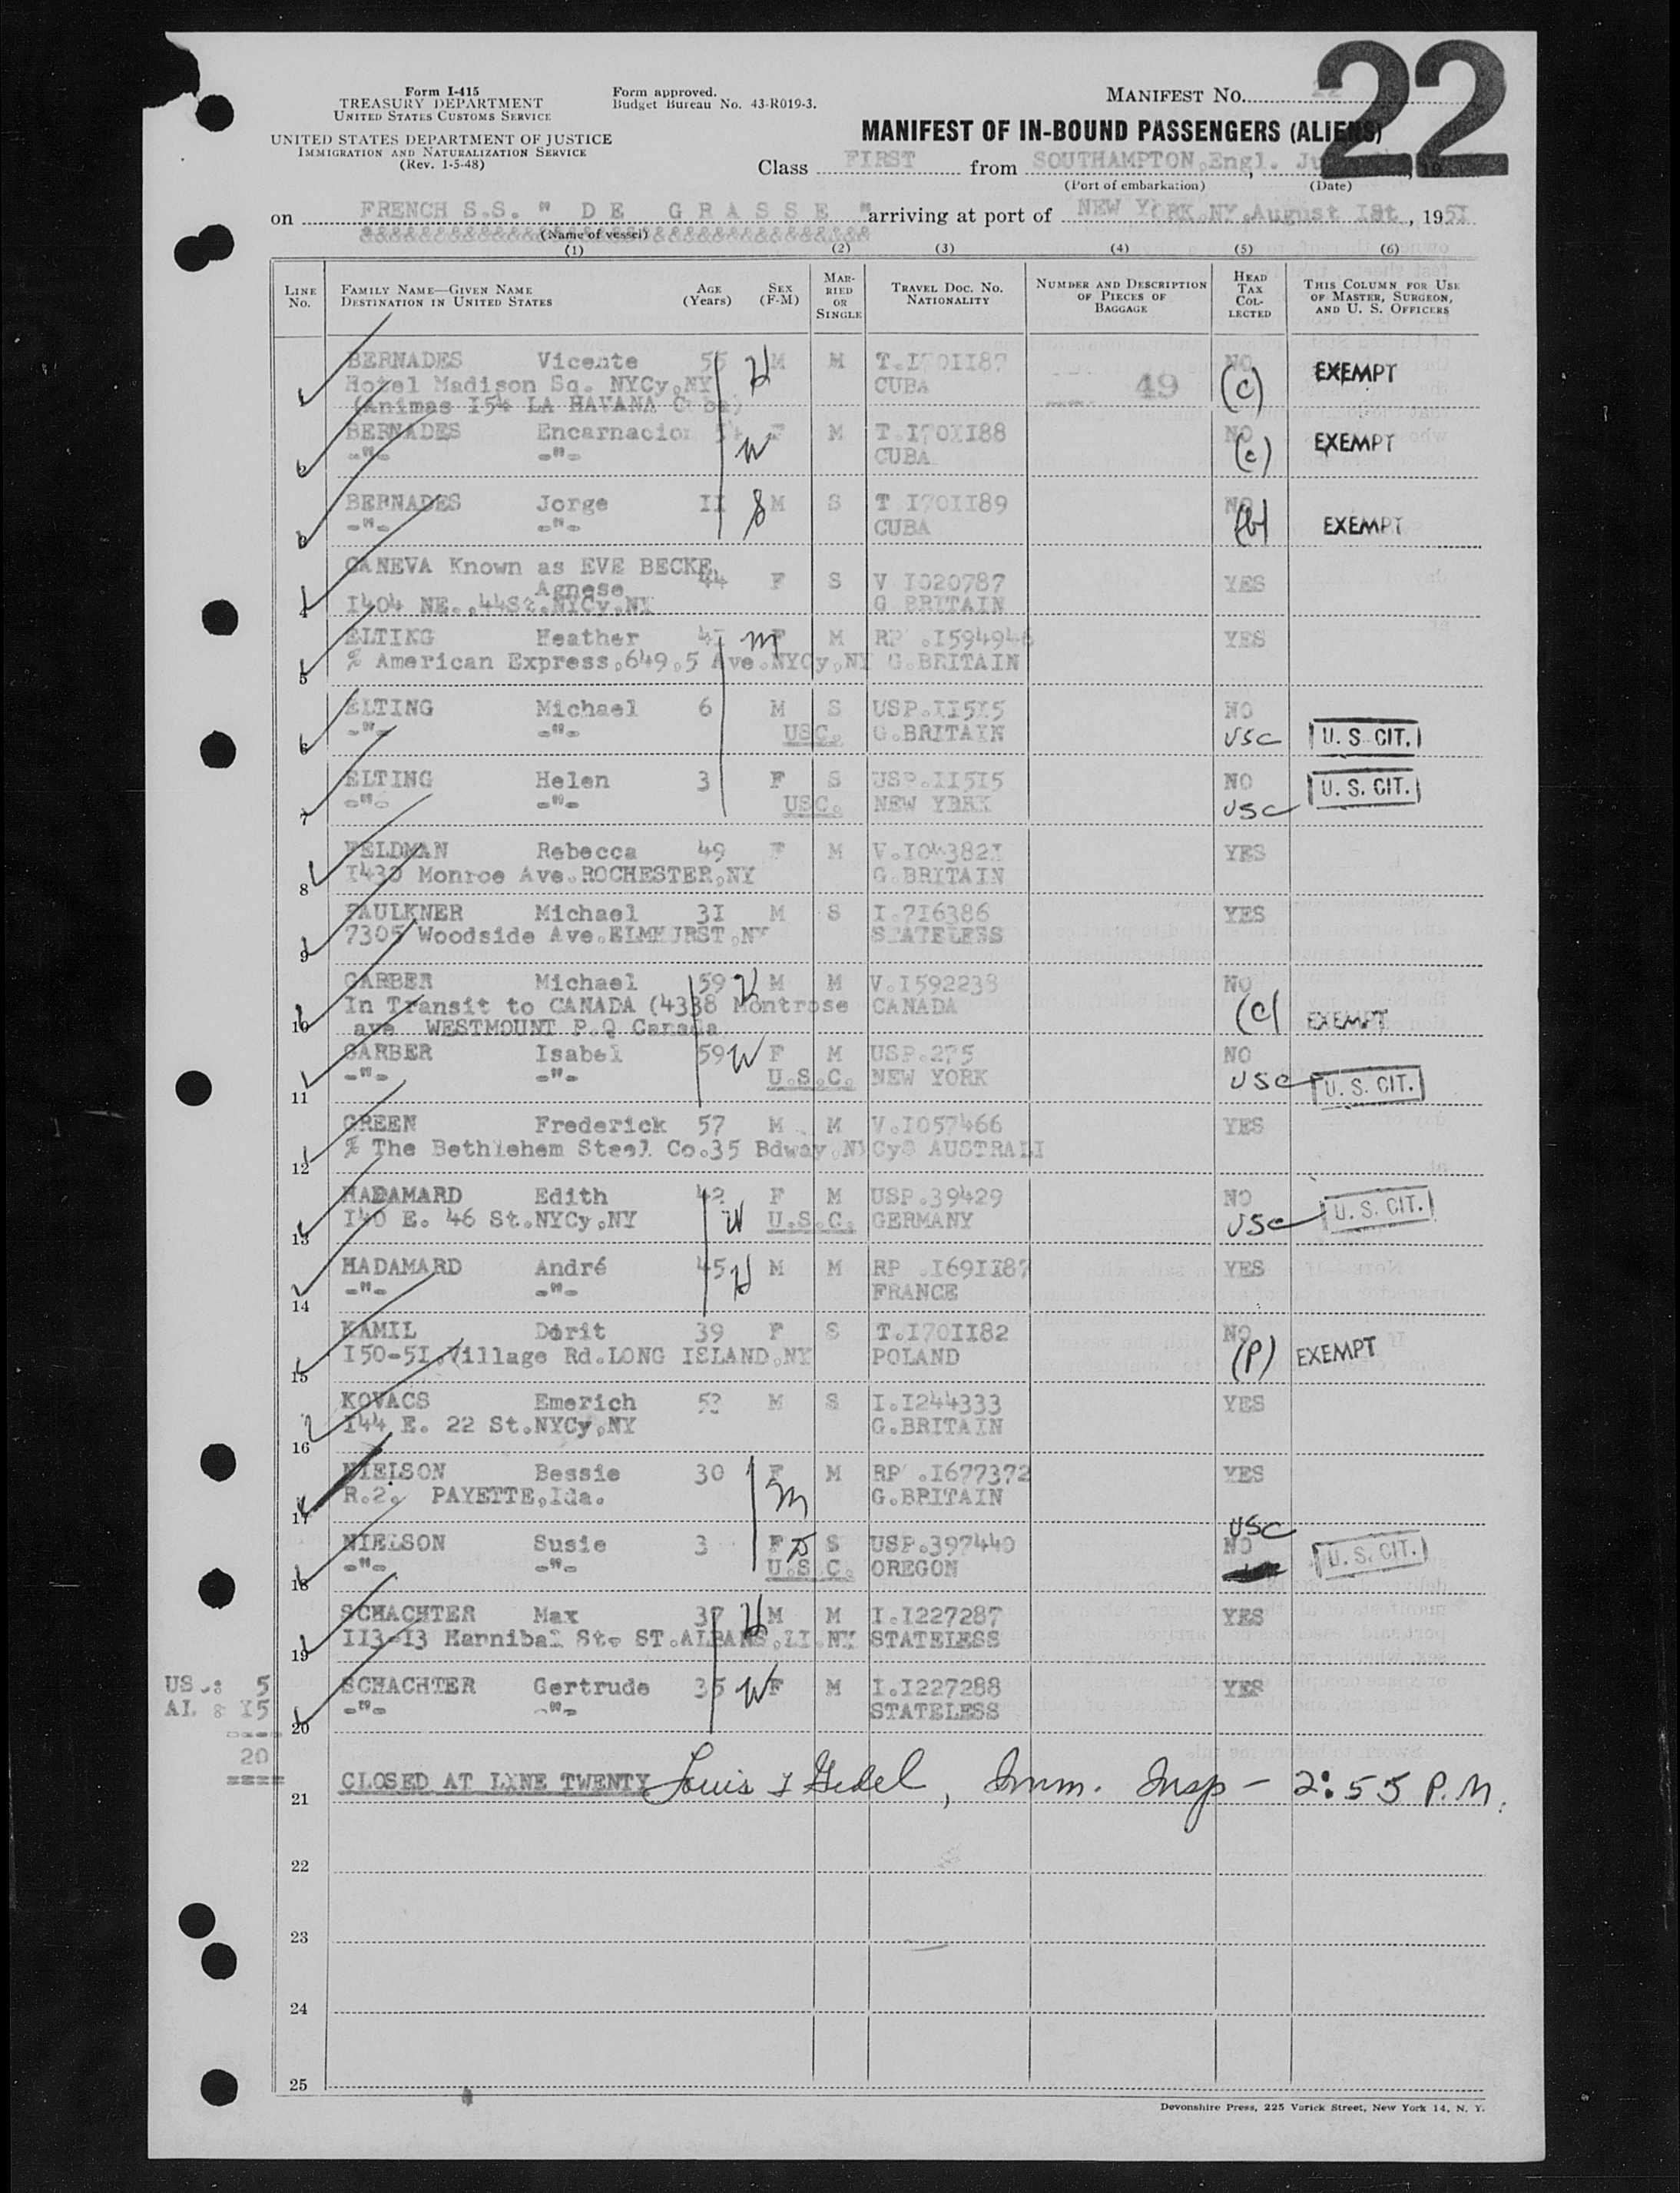 22
Form I-415
TREASURY DEPARTMENT
UNITED STATES CUSTOMS SERVICE
UNITED STATES DEPARTMENT OF JUSTICE
IMMIGRATION AND NATURALIZATION SERVICE
(Rev. 1-5-48)
Form approved.
Budget Bureau No. 43-R019-3.
MANIFEST No.
MANIFEST OF IN-BOUND PASSENGERS (ALIENS)
Class FIRST from SOUTHAMPTON,Engl.
(Port of embarkation) (Date)
on FRENCH S.S. " DE GRASSE " arriving at port of NEW YORK.NY.August Ist, 1951
(Name of vessel)
(1) (2) (3) (4) (5) (6)
LINE No. FAMILY NAME—GIVEN NAME DESTINATION IN UNITED STATES AGE (Years) SEX (F-M) MARRIED OR SINGLE TRAVEL DOC. No. NATIONALITY NUMBER AND DESCRIPTION OF PIECES OF BAGGAGE HEAD TAX COLLECTED THIS COLUMN FOR USE OF MASTER, SURGEON, AND U. S. OFFICERS
BERNADES Vicente 55 H M M T.I701187 NO EXEMPT
Hotel Madison Sq. NYCy,NY CUBA 49 (c)
(Animas I54 LA HAVANA Cuba)
BERNADES Encarnacion F M T.I701188 NO EXEMPT
-"- -"- W CUBA (c)
BERNADES Jorge II M S T I701189 NO
-"- -"- CUBA (b) EXEMPT
CANEVA Known as EVE BECKE
Agnese 44 F S V I020787 YES
I404 NE.,44St.NYCy,NY G BRITAIN
ELTING Heather m F M RP .I594946 YES
% American Express,649,5 Ave.NYCy,NY G.BRITAIN
5
ELTING Michael 6 M S USP.II5I5 NO
-"- -"- USC. G.BRITAIN USC U. S. CIT.
6
ELTING Helen 3 F S USP.II5I5 NO U. S. CIT.
-"- -"- USC. NEW YORK USC
7
FELDMAN Rebecca 49 F M V.I04382I YES
8 I430 Monroe Ave.ROCHESTER,NY G.BRITAIN
FAULKNER Michael 3I M S I.716386 YES
7305 Woodside Ave.ELMHURST,NY STATELESS
9
GARBER Michael 59 H M M V.I592238 NO
In Transit to CANADA (4338 Montrose CANADA (c) EXEMPT
10 ave WESTMOUNT P.Q Canada
GARBER Isabel 59 W F M USP.275 NO
-"- -"- U.S.C. NEW YORK USC U. S. CIT.
11
GREEN Frederick 57 M M V.I057466 YES
% The Bethlehem Steel Co.35 Bdway,NYCy AUSTRALI
12
HADAMARD Edith 42 F M USP.39429 NO
I40 E. 46 St.NYCy,NY W U.S.C. GERMANY USC U. S. CIT.
13
HADAMARD André 45 H M M RP .I691187 YES
-"- -"- FRANCE
14
KAMIL Dorit 39 F S T.I701182 NO
I50-5I.Village Rd.LONG ISLAND,NY POLAND (P) EXEMPT
15
KOVACS Emerich 52 M S I.I244333 YES
I44 E. 22 St.NYCy,NY G.BRITAIN
16
NIELSON Bessie 30 F M RP .I677372 YES
R.2. PAYETTE,Ida. m G.BRITAIN
17
USC
NIELSON Susie 3 F S USP.397440 NO U. S. CIT.
-"- -"- U.S.C. OREGON
18
SCHACHTER Max 37 H M M I.I227287 YES
II3-I3 Hannibal St. ST.ALBANS,LI.NY STATELESS
19
US.: 5 SCHACHTER Gertrude 35 W F M I.I227288 YES
AL : I5 -"- -"- STATELESS
20
20
CLOSED AT LINE TWENTY Louis Gedel, Imm. Insp - 2:55 P.M.
21
22
23
24
25
Devonshire Press, 225 Varick Street, New York 14, N. Y.